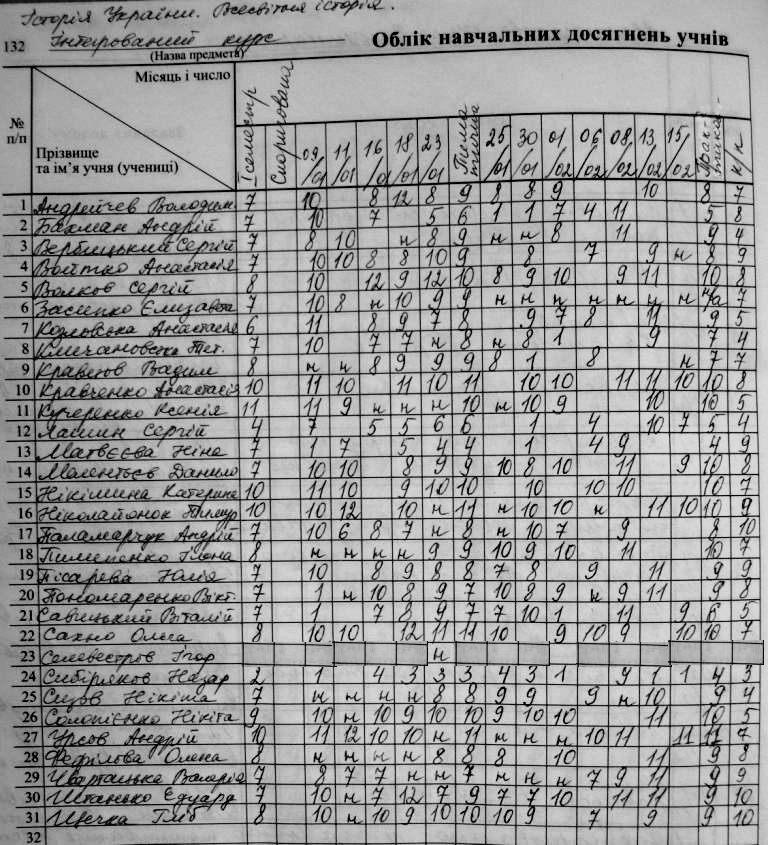 Історія України. Всесвітня історія.
132 Інтегрований курс Облік навчальних досягнень учнів
(Назва предмета)
Місяць і число
№ п/п
Прізвище та ім'я учня (учениці)
I семестр Скоригована 09/01 11/01 16/01 18/01 23/01 Тематична 25/01 30/01 01/02 06/02 08/02 13/02 15/02 к/к
1 Андрейчев Володим. 7 10 8 12 8 9 8 8 9 10 8 7
2 Бахман Андрій 7 10 7 5 6 1 1 7 4 11 5 8
3 Вербицький Сергій 7 8 10 н 8 9 н н 8 11 9 4
4 Войтко Анастасія 7 10 10 8 8 10 9 8 7 9 н 8 9
5 Волков Сергій 8 10 12 9 12 10 8 9 10 9 11 10 8
6 Засипко Єлизавета 7 10 8 н 10 9 9 н н н н н н н н/а 7
7 Козловська Анастасія 6 11 8 9 7 8 9 7 8 11 9 5
8 Тет. 7 10 7 7 н 8 н 8 1 9 7 4
9 Кравцов Вадим 8 н н 8 9 9 9 8 1 8 н 7 7
10 Кравченко Анастасія 10 11 10 11 10 11 10 10 11 11 10 10 8
11 Кучеренко Ксенія 11 11 9 н н н 10 н 10 9 10 10 5
12 Лашин Сергій 4 7 5 5 6 5 1 4 10 7 5 4
13 Матвєєва Ніна 7 1 7 5 4 4 1 4 9 4 9
14 Мелентьєв Данило 7 10 10 8 9 9 10 8 10 11 9 10 8
15 Нікішина Катерина 10 11 10 9 10 10 10 10 10 10 7
16 Ніколайонок Тимур 10 10 12 10 н 11 н 10 10 н 11 10 10 9
17 Паламарчук Андрій 7 10 6 8 7 н 8 н 10 7 9 8 10
18 Пименко Ілона 8 н н н н 9 9 10 9 10 11 10 7
19 Пісарева Юлія 7 10 8 9 8 8 7 8 9 11 9 9
20 Пономаренко Вікт. 7 1 н 10 8 9 7 10 8 9 н 9 11 9 8
21 Савицький Віталій 7 1 7 8 9 7 7 10 1 11 9 6 5
22 Сахно Ольга 8 10 10 12 11 11 10 9 10 9 10 10 7
23 Селевестров Ігор н
24 Сибіряков Назар 2 1 4 3 3 3 4 3 1 9 1 1 4 3
25 Сизов Нікіта 7 н н н н 8 8 9 9 9 н 10 9 4
26 Солопієнко Нікіта 9 10 н 10 9 10 10 9 10 10 11 10 5
27 Урсов Андрій 10 11 12 10 10 н 11 н н н 10 11 11 11 7
28 Феділова Олена 8 н н н н 8 8 8 10 11 9 8
29 Чвартацька Валерія 7 8 7 7 н н 7 н н н 7 9 11 9 9
30 Штанько Едуард 7 10 н 7 12 7 9 7 7 10 11 11 9 10
31 Щечка Гліб 8 10 н 10 9 10 10 10 9 7 9 9 10
32